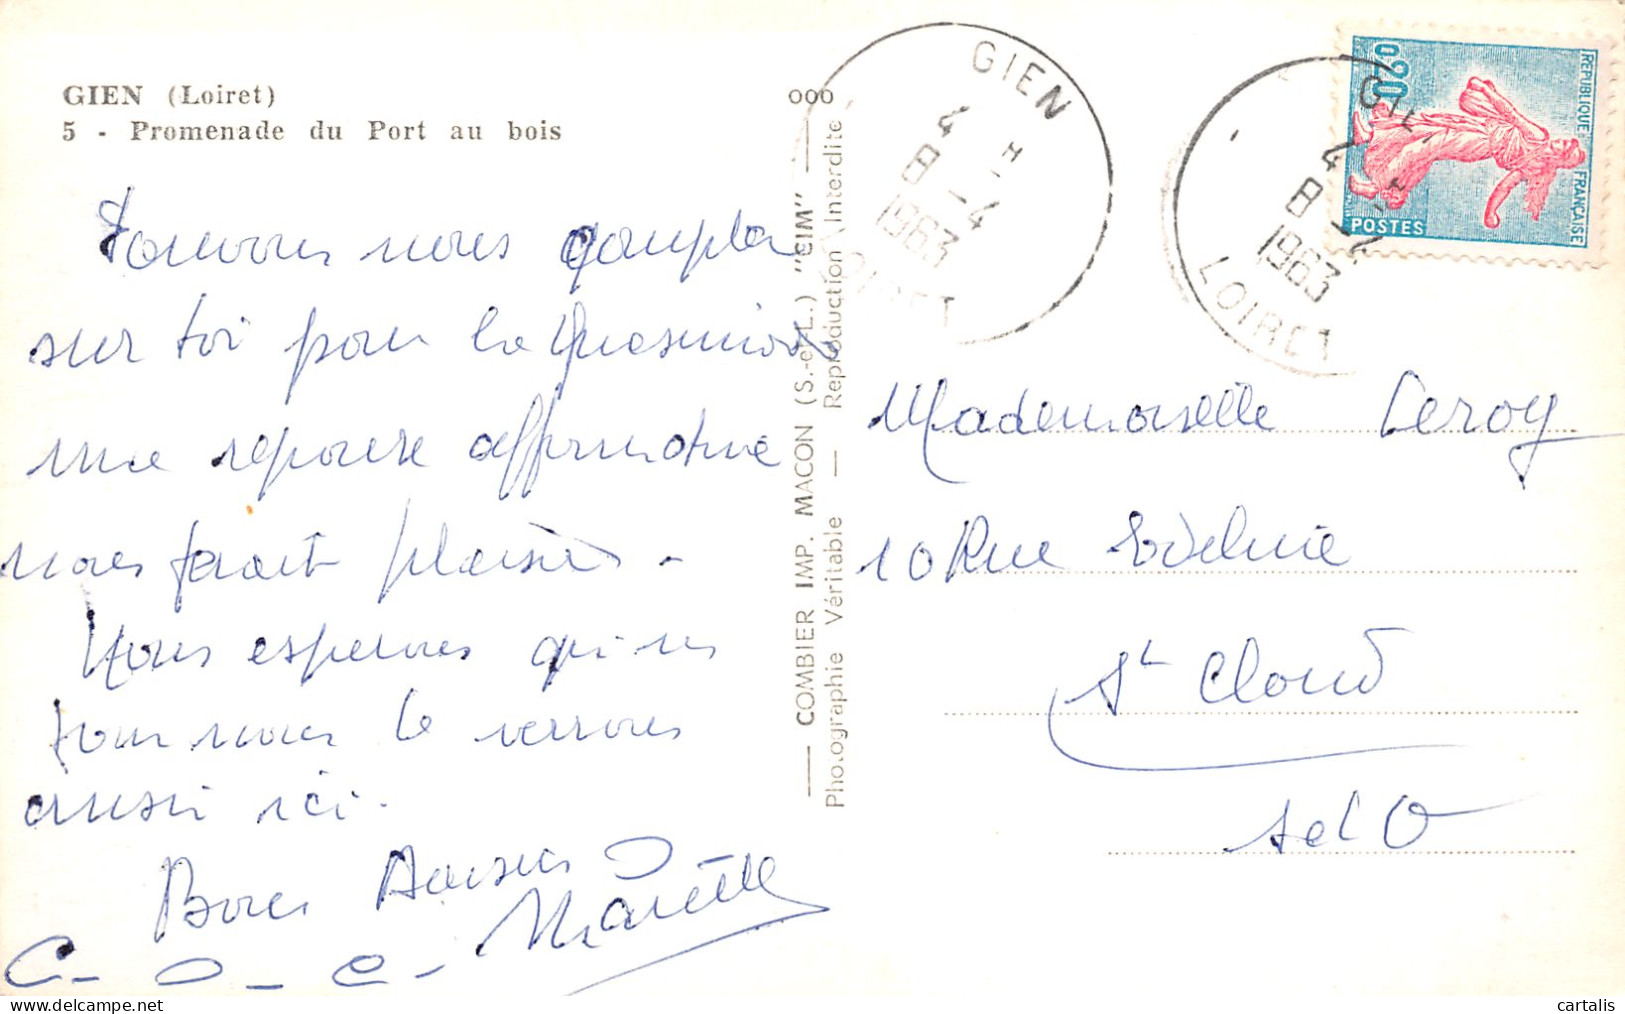 GIEN (Loiret)
5 - Promenade du Port au bois
sur toi pour la Quasimodo
une reponse affirmative
nous ferait plaisir -
Nous esperons qu'
nous le verrons
aussi ici.
Bons Baisers
Mariette
COMBIER IMP. MACON (S.-et-L.) "CIM"
Photographie Véritable — Reproduction Interdite
GIEN
4 H
8 - 4
1963
LOIRET
GIEN
4 H
8 - 4
1963
LOIRET
0,20
REPUBLIQUE FRANÇAISE
POSTES
Mademoiselle Leroy
10 Rue
St Cloud
S et O
cartalis